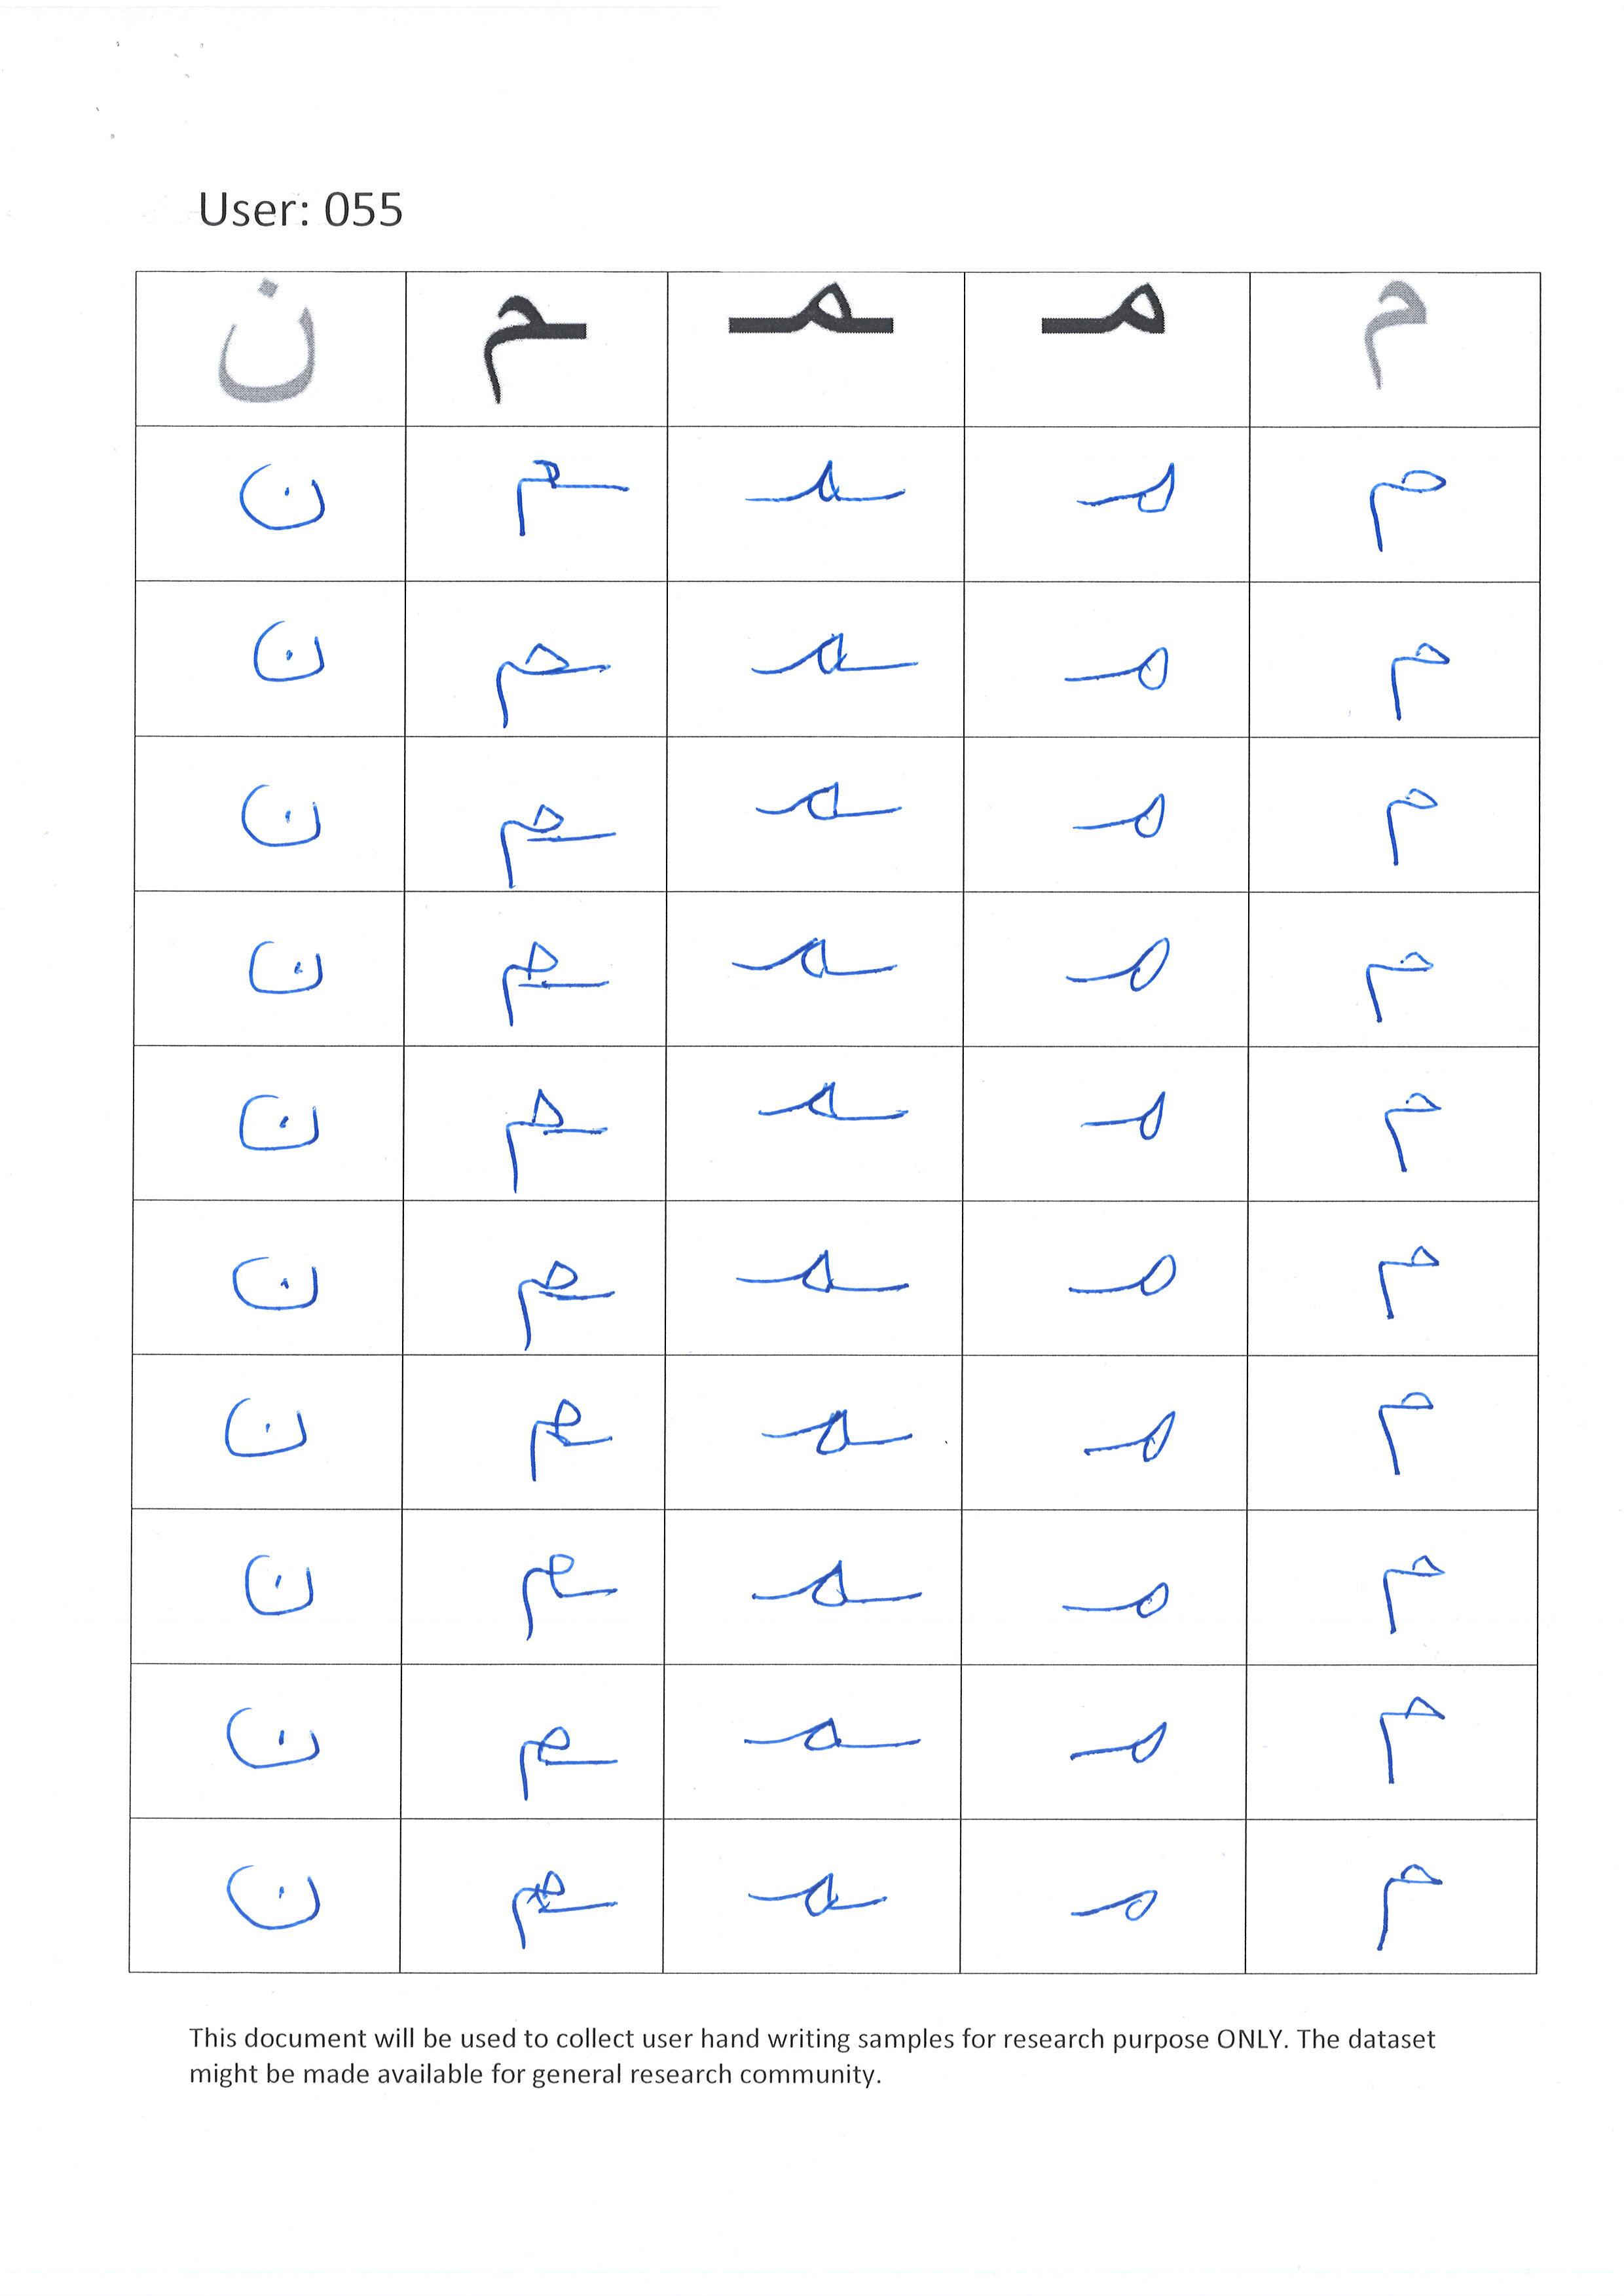 User: 055
م مـ ـمـ ـم ن
م مـ ـمـ ـم ن
م مـ ـمـ ـم ن
م مـ ـمـ ـم ن
م مـ ـمـ ـم ن
م مـ ـمـ ـم ن
م مـ ـمـ ـم ن
م مـ ـمـ ـم ن
م مـ ـمـ ـم ن
م مـ ـمـ ـم ن
م مـ ـمـ ـم ن
This document will be used to collect user hand writing samples for research purpose ONLY. The dataset
might be made available for general research community.